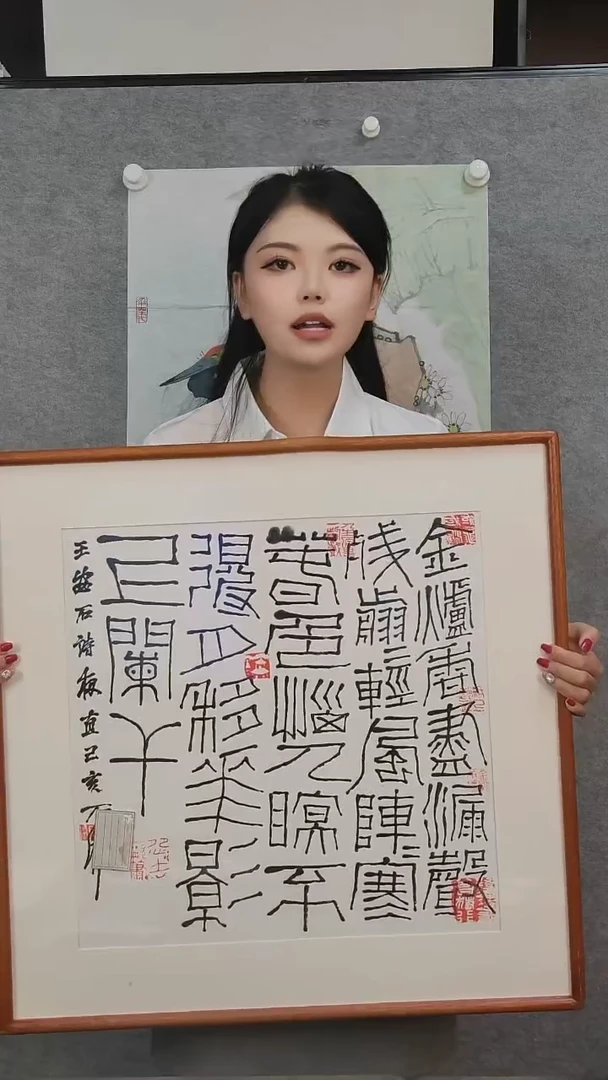 金爐香盡漏聲
殘翦輕風陣寒
春色惱人眠不
得月移花影
上闌干
王安石詩 己亥